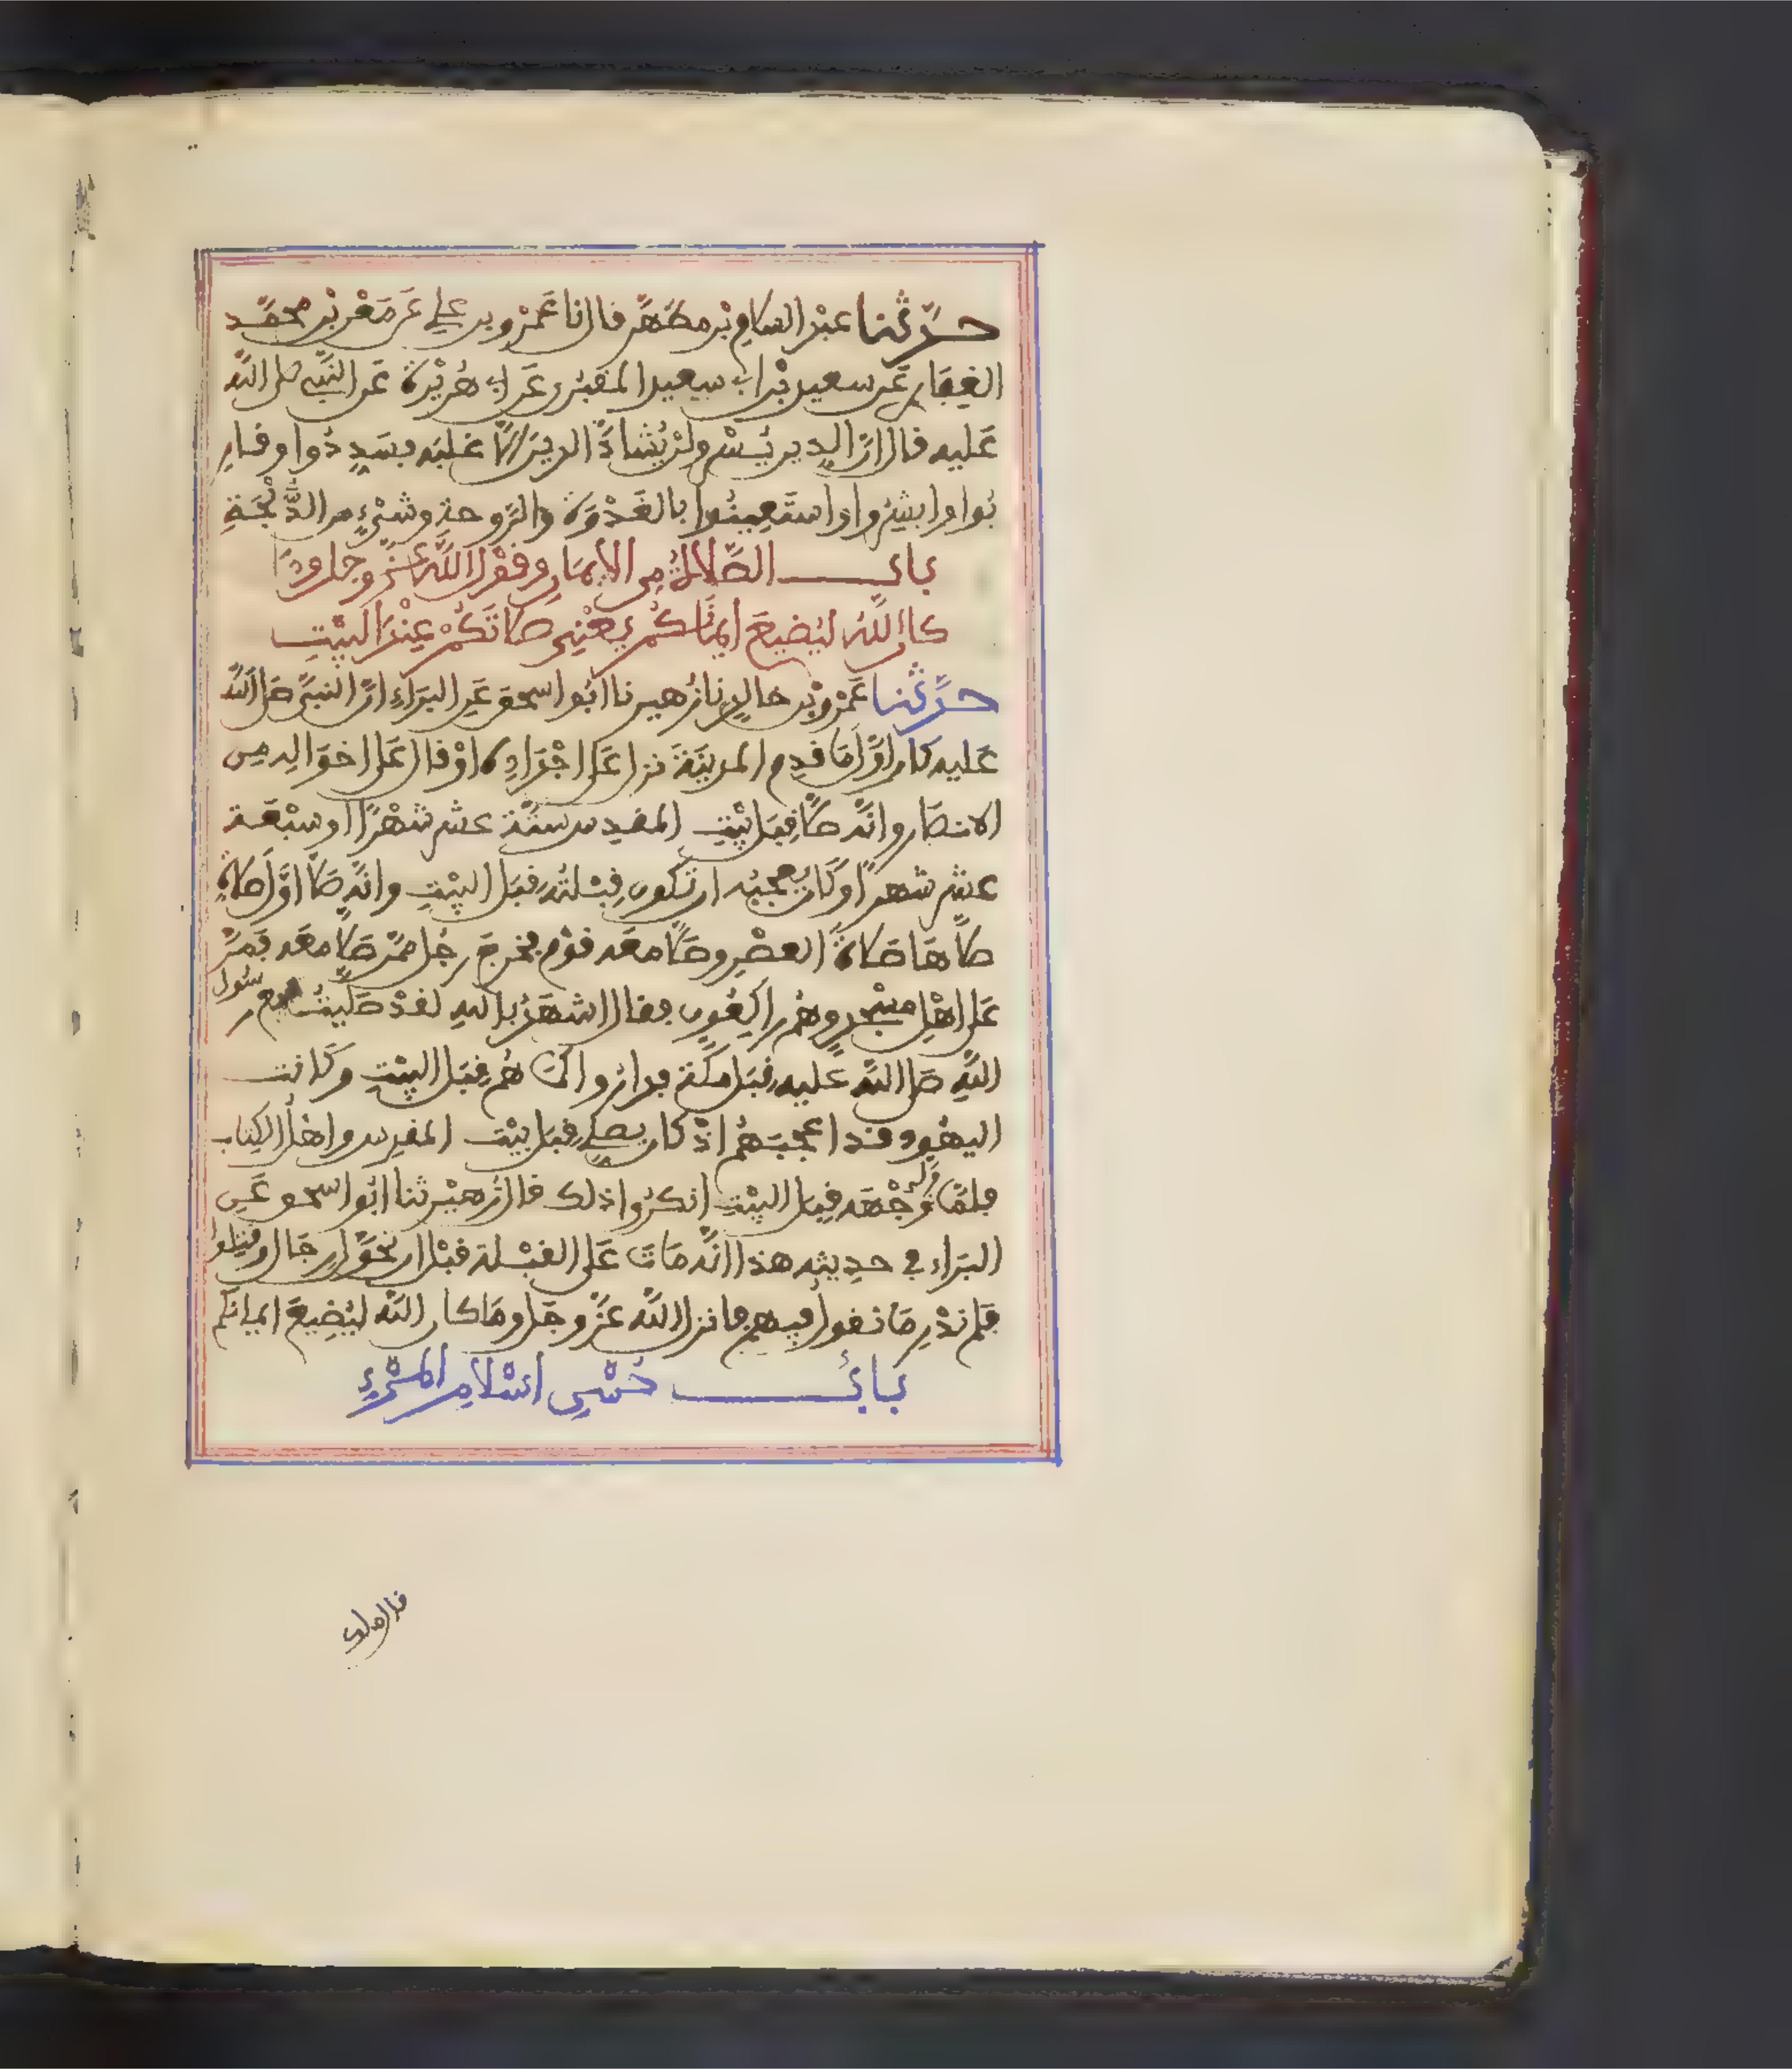 حدّثنا عبد السلام بن مطهّر قال نا عمرو بن علي عن معن بن محمّد
الغِفاري عن سعيد بن ابي سعيد المقبُري عن ابي هُريْرة عن النبي صلى الله
عليه قال انّ الدين يُسْر ولنْ يُشادَّ الدينَ الّا غلبَه فسَدِّدُوا وقار
بُوا وابشِرُوا واستَعِينُوا بالغَدْوَة والرَّوحة وشَيْءٍ من الدُّلْجَةِ
بابُ الصَّلاةُ من الإيمان وقوْل اللَّه عزّ وجل ومَا
كان اللهُ ليُضيعَ ايمانكُم يعْني صلاتَكُمْ عِنْدَ البيْتِ
حدّثنا عَمْرو بْن خالدٍ نا زُهير نا ابُوا سحق عَنِ البَرَاءِ انّ النبيَّ صلى اللّه
عَليه كان اوّل مَا قدِم المدينَةَ نزل عَلَى اجْدَادِه اوْ قال عَلى اخوَاله مِن
الانصَار وانّه صلّى قِبَل بَيْتِ المقدِس ستّة عشر شهْرًا او سبْعَة
عشر شهرًا وكَان يعجبُه ان تكون قِبْلتُه قِبَل البيْتِ وانّه صَلّى اوَّل صلاةٍ
صلّاهَا صَلاةَ العصْرِ وصَلّى معَه قوْم فخرجَ رجُل ممّن صَلّى معَه فَمَرَّ
عَلى اهْلِ مسْجدٍ وهُم راكِعُون فقال اشهَدُ بالله لقدْ صَلّيتُ مع رسُول
اللّه صَلى اللّه عَليه قِبَل مكّة فدارُوا كمَا هُم قِبَل البيْتِ وكَانت
اليهُود قد اعجَبَهُم اذْ كان يصلي قِبَل بيْت المقدِس واهْلُ الكِتاب
فلمّا ولّى وَجْهَه قِبَل البيْتِ انكرُوا ذلك قال زهيْر ثنا ابُوا سحق عَن
البَراء في حديثه هذا انّه مَاتَ عَلى القبْلة قبْل ان تحَوَّل رجَال وقتِلُوا
فلم ندْرِ مَا نقول فيهم فانزل اللّه عزّ وجَل ومَا كان اللّه ليُضِيعَ ايمانكم
بَابُ حُسْنِ اسْلامِ المَرْءِ
قال ملك